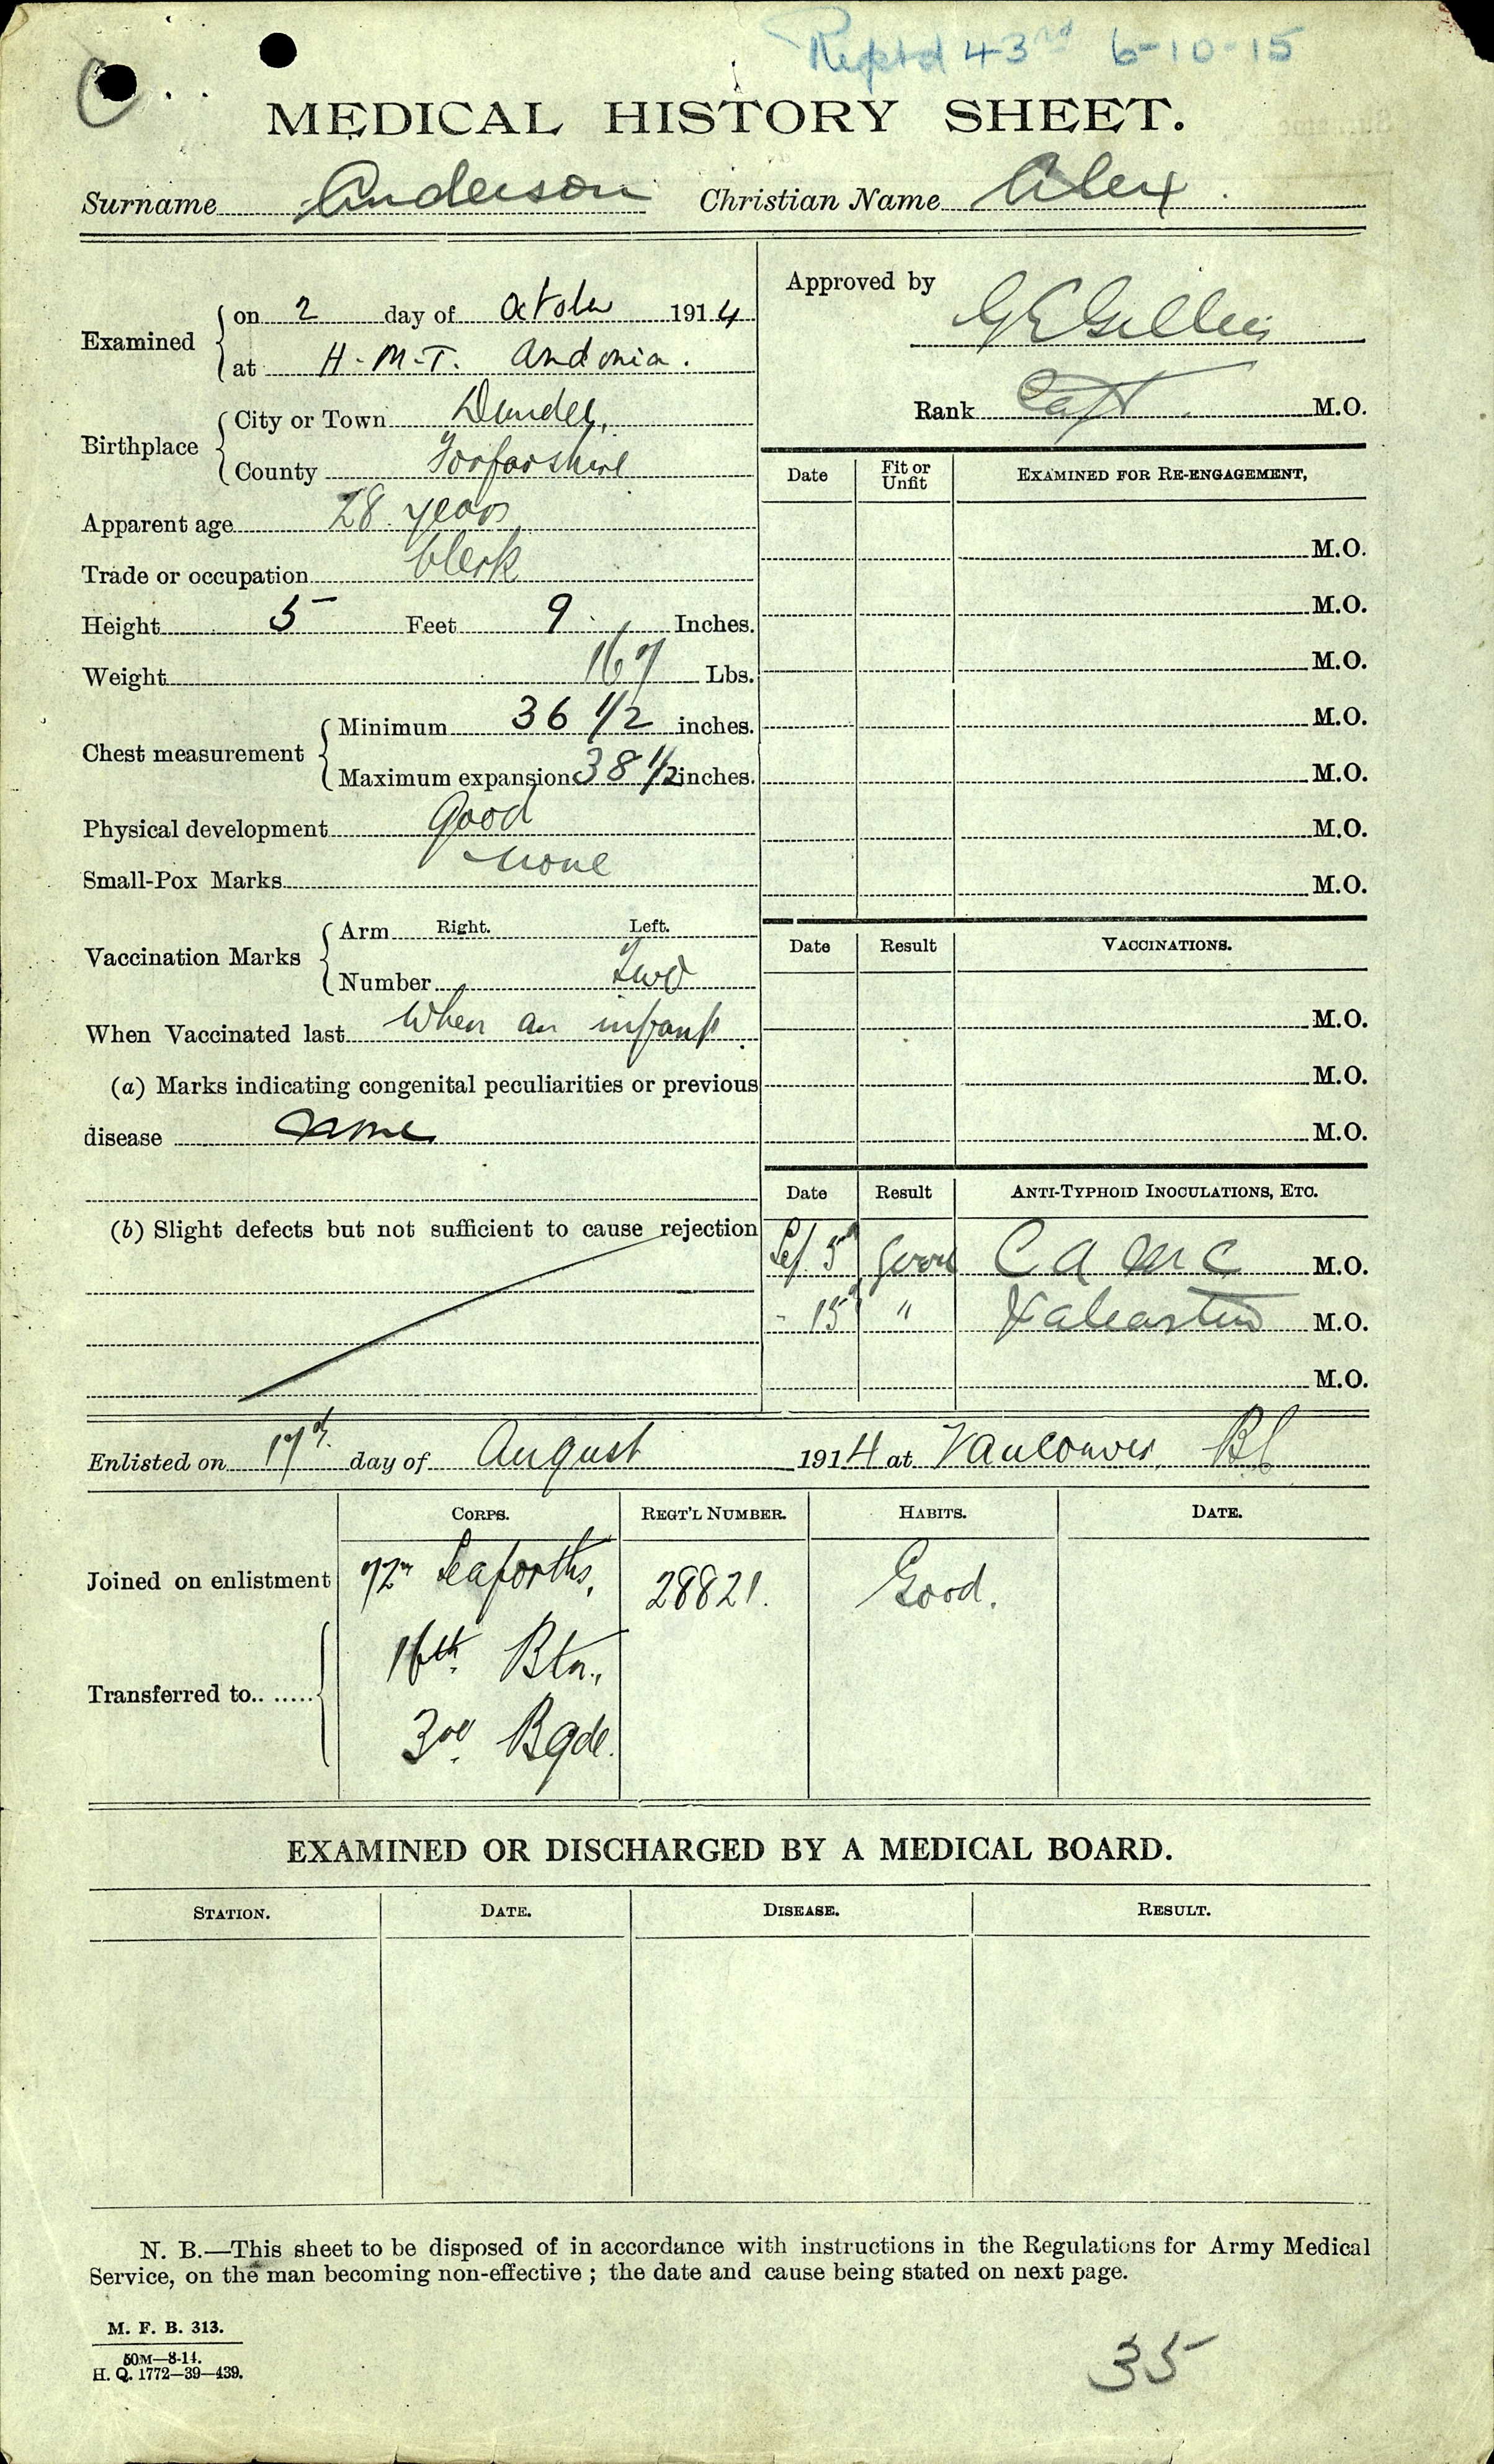 43rd 6-10-15
C
MEDICAL HISTORY SHEET.
Surname Anderson Christian Name Alex.
Examined { on 2 day of October 1914
at H-M-T. Andonia.
Birthplace { City or Town Dundee,
County Forfarshire
Apparent age 28 years
Trade or occupation Clerk
Height 5 Feet 9 Inches.
Weight 167 Lbs.
Chest measurement { Minimum 36 1/2 inches.
Maximum expansion 38 1/2 inches.
Physical development Good
Small-Pox Marks None
Vaccination Marks { Arm Right. Left.
Number Two
When Vaccinated last When an infant.
(a) Marks indicating congenital peculiarities or previous
disease None
(b) Slight defects but not sufficient to cause rejection
Approved by G E Gillies
Rank Capt M.O.
Date Fit or Unfit EXAMINED FOR RE-ENGAGEMENT,
M.O.
M.O.
M.O.
M.O.
M.O.
M.O.
M.O.
Date Result VACCINATIONS.
M.O.
M.O.
M.O.
Date Result ANTI-TYPHOID INOCULATIONS, ETC.
Sep. 5 Good C A M C M.O.
- 15 " Valcartier M.O.
M.O.
Enlisted on 17th day of August 1914 at Vancouver, BC
CORPS. REGT'L NUMBER. HABITS. DATE.
Joined on enlistment 72nd Seaforths, 28821. Good.
Transferred to.. ..... { 16th Btn.,
3rd Bgde.
EXAMINED OR DISCHARGED BY A MEDICAL BOARD.
STATION. DATE. DISEASE. RESULT.
N. B.—This sheet to be disposed of in accordance with instructions in the Regulations for Army Medical
Service, on the man becoming non-effective ; the date and cause being stated on next page.
M. F. B. 313.
50M—8-14.
H. Q. 1772—39—439.
35